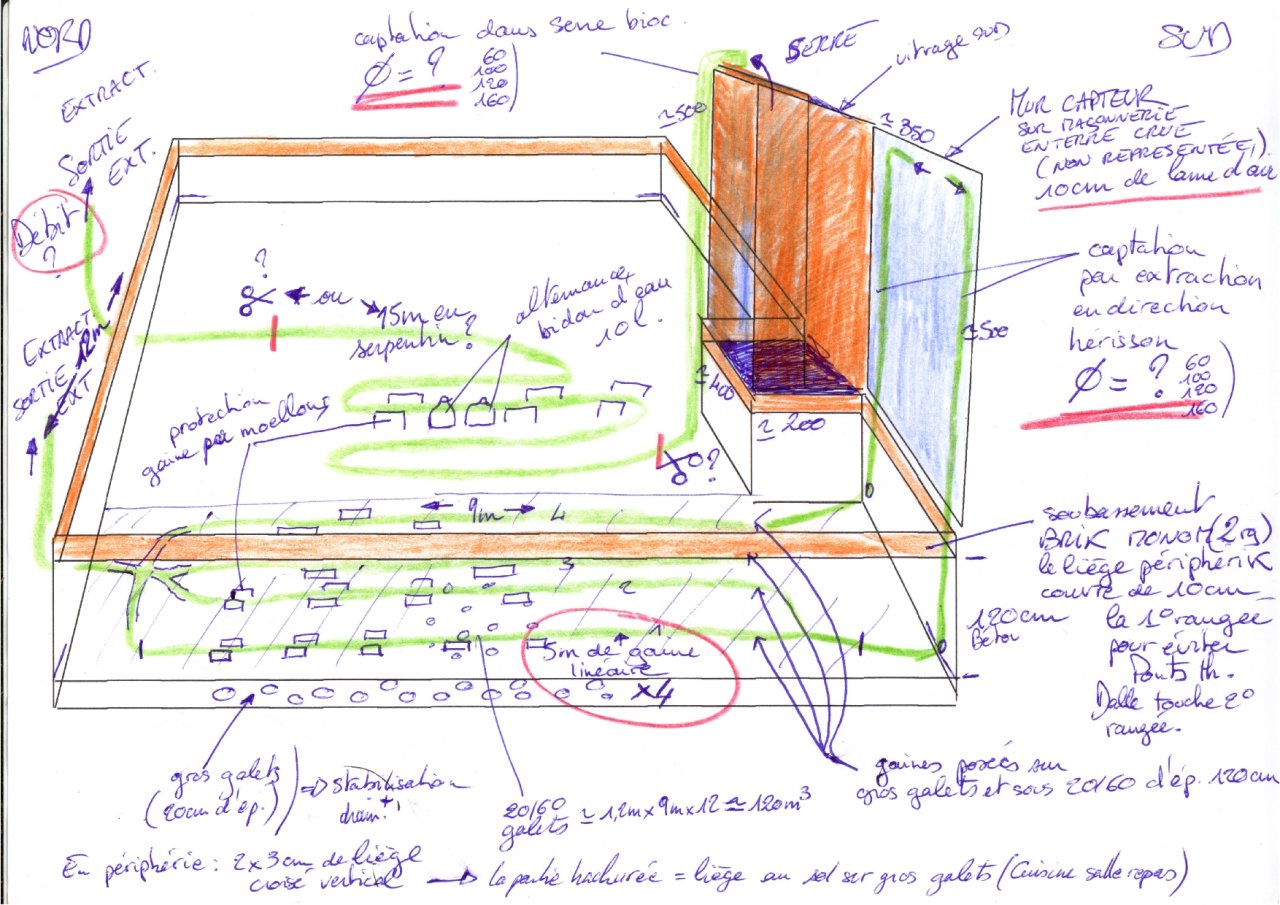 NORD
captation dans serre bioc.
Ø = ?
60
100
120
160
SERRE
vitrage SUD
SUD
EXTRACT.
SORTIE
EXT.
Débit
?
≃500
≃350
MUR CAPTEUR
SUR MAÇONNERIE
EN TERRE CRUE
(NON REPRESENTÉE,).
10cm de lame d'air
?
ou
15m en
serpentin?
alternance
bidon d'eau
10l.
captation
par extraction
en direction
hérisson
Ø = ?
60
100
120
160
≃500
EXTRACT.
SORTIE 12m
EXT
protection
gaine par moellons
≃400
≃200
?
9m
4
3
2
1
soubassement
BRIK MONOM (2rg)
le liège périphérik
couvre de 10cm
la 1° rangée
pour éviter
Ponts th.
Dalle touche 2°
rangée.
120cm
Béton
5m de gaine
linéaire
x4
gros galets
(20cm d'ép.)
=> stabilisation
drain
+
!
20/60
galets
≃ 1,2m x 9m x 12 ≃ 120m³
gaines posées sur
gros galets et sous 20/60 d'ép. 120cm
En périphérie : 2 x 3cm de liège
croisé vertical
la partie hachurée = liège au sol sur gros galets (Cuisine salle repas)